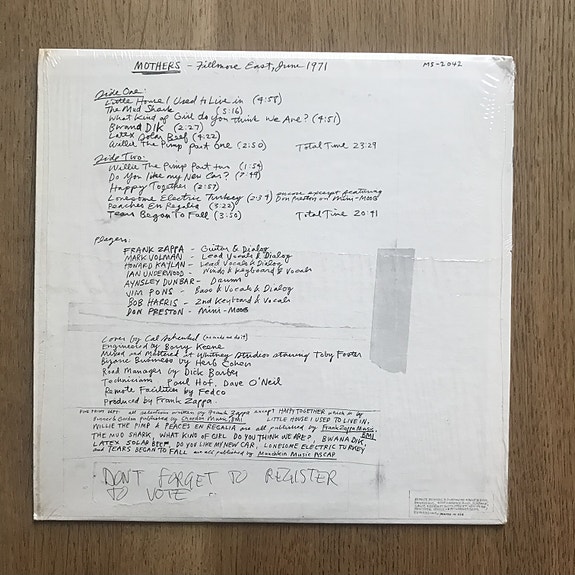 MOTHERS - Fillmore East, June 1971
MS-2042
Side One:
Little House I Used to Live in (4:58)
The Mud Shark (5:16)
What Kind of Girl do you Think We Are? (4:51)
Bwana DIK (2:27)
Latex Solar Beef (4:22)
Willie The Pimp Part One (2:50) Total Time 23:29
Side Two:
Willie The Pimp Part two (1:54)
Do You like my New Car? (7:49)
Happy Together (2:57)
Lonesome Electric Turkey (2:39) encore excerpt featuring Don Preston on Mini-MOOG
Peaches En Regalia (3:22)
Tears Began To Fall (3:50) Total Time 20:41
Players:
FRANK ZAPPA - Guitar & Dialog
MARK VOLMAN - Lead Vocals & Dialog
HOWARD KAYLAN - Lead Vocals & Dialog
IAN UNDERWOOD - Winds & Keyboard & Vocals
AYNSLEY DUNBAR - Drums
JIM PONS - Bass & Vocals & Dialog
BOB HARRIS - 2nd Keyboard & Vocals
DON PRESTON - Mini-MOOG
Cover by Cal Schenkel (he made me do it)
Engineered by Barry Keene
Mixed and Mastered at Whitney Studios starring Toby Foster
Bizarre Business by Herb Cohen
Road Manager by Dick Barber
Technicians Paul Hof, Dave O'Neil
Remote Facilities by Fedco
Produced by Frank Zappa
FINE PRINT DEPT: all selections written by Frank Zappa except HAPPY TOGETHER which is by
published by BMI LITTLE HOUSE I USED TO LIVE IN,
WILLIE THE PIMP & PEACES EN REGALIA are all published by Frank Zappa Music, BMI
THE MUD SHARK, WHAT KIND OF GIRL DO YOU THINK WE ARE?, BWANA DIK,
LATEX SOLAR BEEF, DO YOU LIKE MY NEW CAR, LONESOME ELECTRIC TURKEY,
and TEARS BEGAN TO FALL are all published by Munchkin Music ASCAP
DON'T FORGET TO REGISTER
TO VOTE